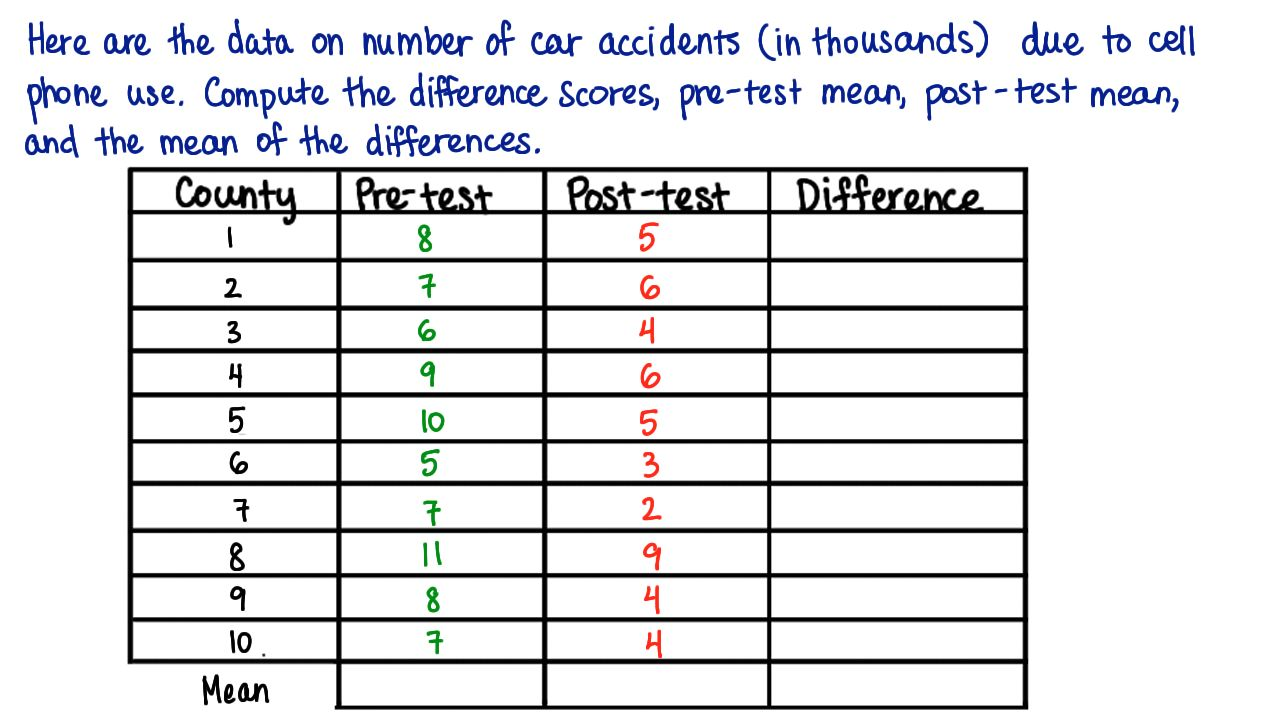 Here are the data on number of car accidents (in thousands) due to cell
phone use. Compute the difference scores, pre-test mean, post-test mean,
and the mean of the differences.
County Pre-test Post-test Difference
1 8 5
2 7 6
3 6 4
4 9 6
5 10 5
6 5 3
7 7 2
8 11 9
9 8 4
10. 7 4
Mean